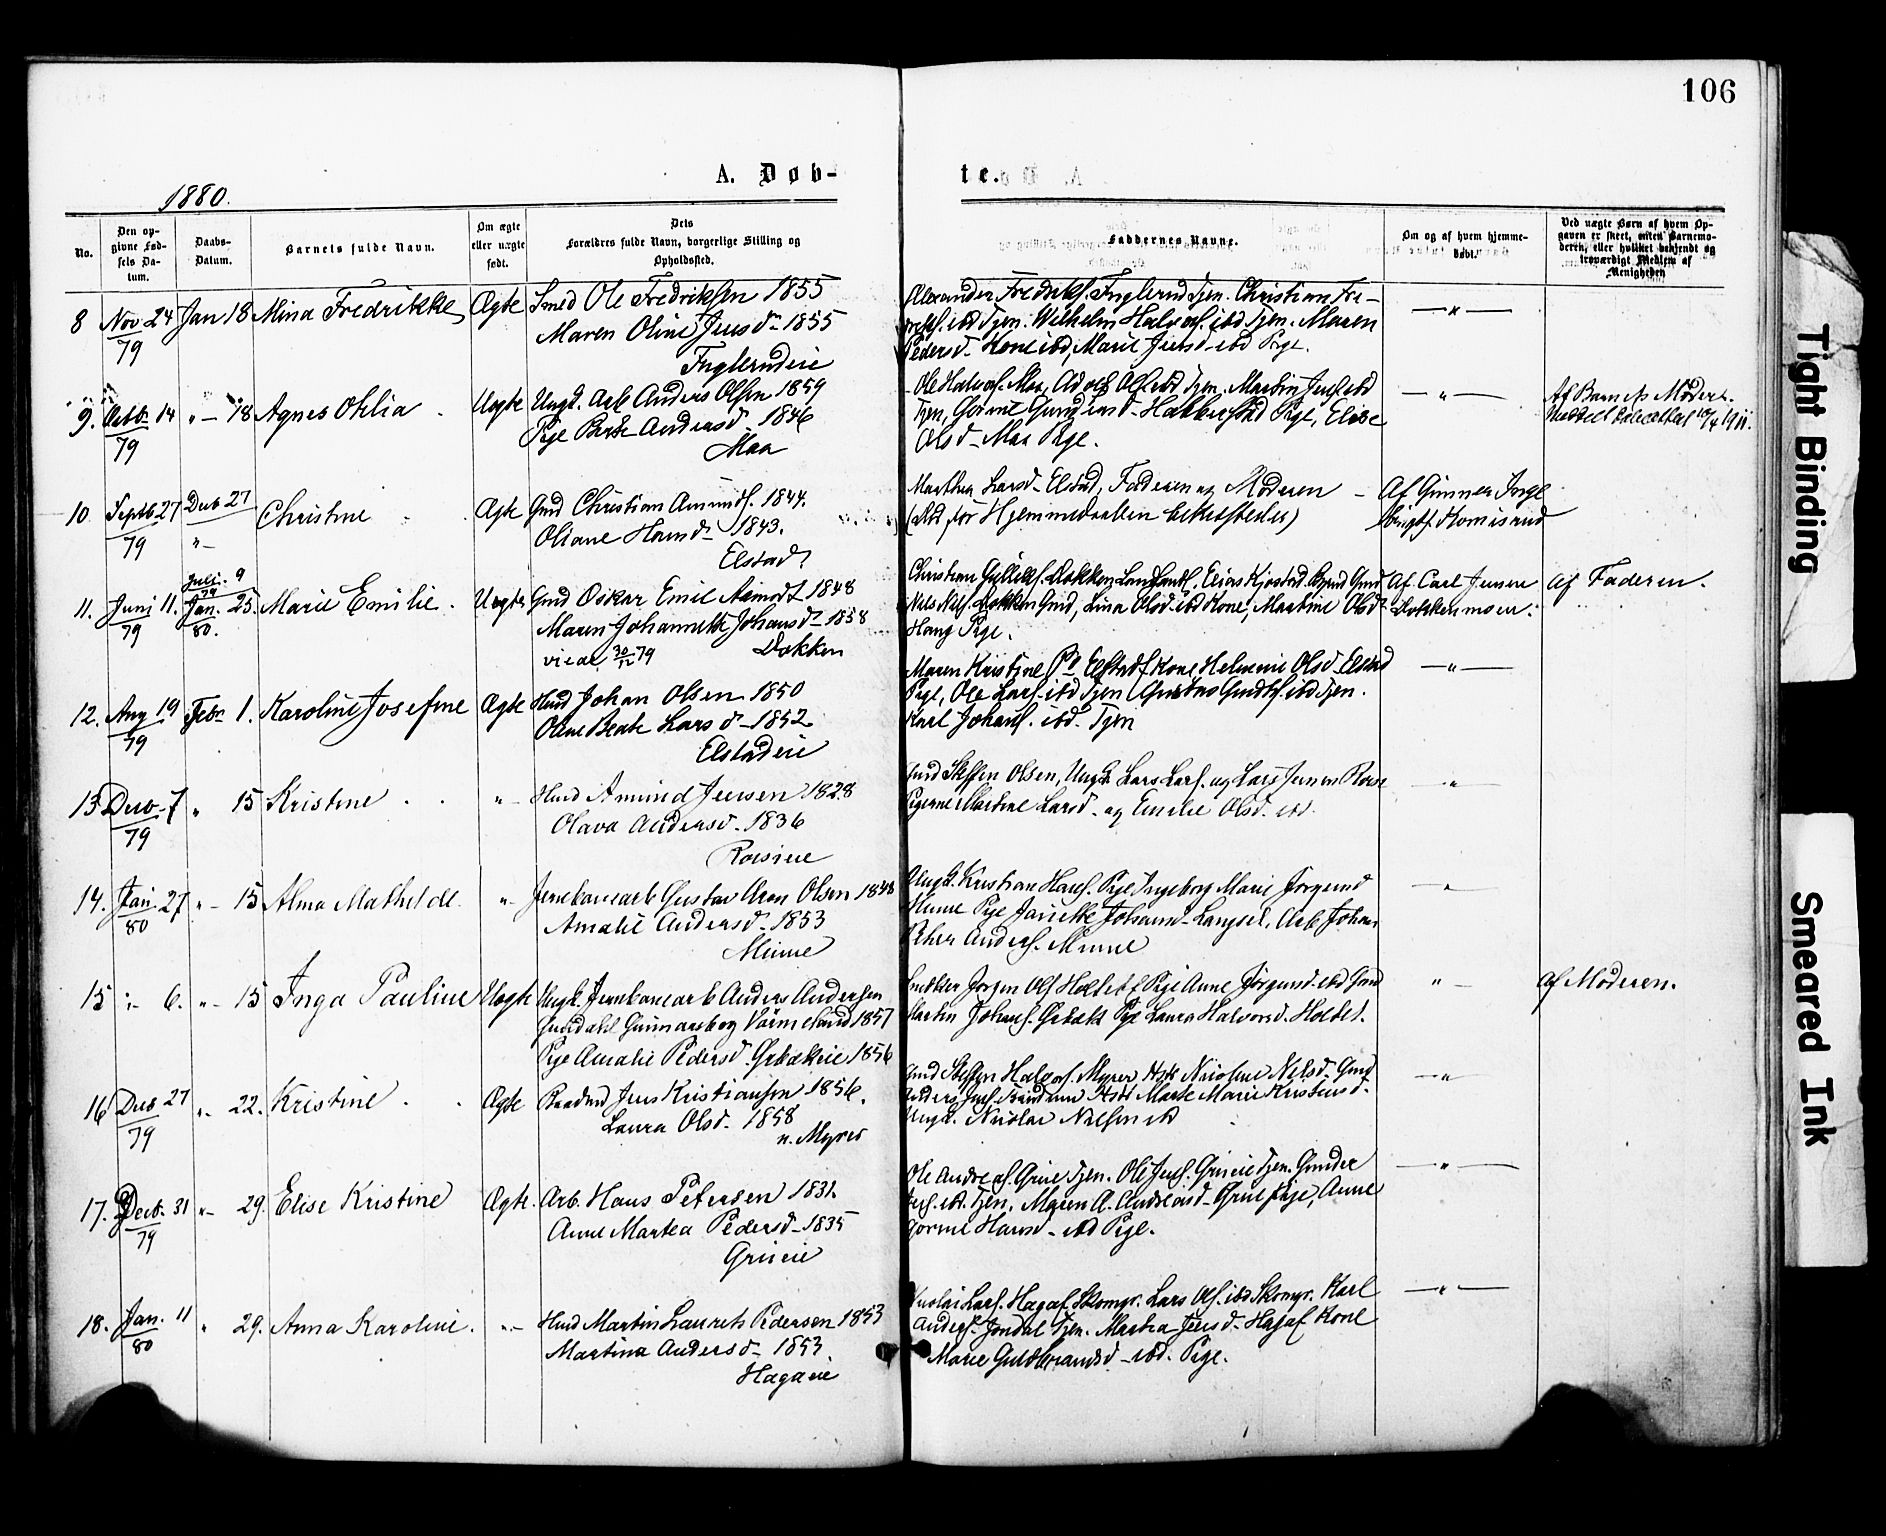 106
A. Døb-
te.
1880.
No.
Den op-
givne Fød-
sels Da-
tum.
Daabs-
Datum.
Barnets fulde Navn.
Om ægte
eller uægte
født.
Dets
Forældres fulde Navn, borgerlige Stilling og
Opholdssted.
Faddernes Navne.
Om og af hvem hjemme-
døbt.
Ved uægte Børn af hvem Op-
gaven er skeet, enten Barnemo-
deren, eller hvilket bekjendt og
troværdigt Medlem af
Menigheden
8 Nov 24 Jan 18 Mina Fredrikke Ægte Smed Ole Fredriksen 1855
79 Maren Oline Jensd 1855
Fuglerudeie
Alexander Fredriks. Fuglerud Tjen. Christian Fre-
driks. ibd Tjen. Wilhelm Halvors. ibd Tjen. Maren
Pedersd- Kone ibd, Marie Jensd- ibd Pige.
9. Octb 14 " - 18 Agnes Othlia Uægte Ungk. Arb Anders Olsen 1859
79 Pige Andersd 1846
Moa
Ole Halvors. Moa, Adolf Ols. ibd Tjen, Martin Jens. ibd
Tjen, Pige, Elise
Olsd- Moa Pige.
Af Barnets Moder.
10/4 1911.
10 Septb 27 Decb 27 Christine Ægte Gmd Christian Amunds. 1844.
79 " - Oliane Hansd- 1843.
Elstad
Marthea Larsd- Elstad, Faderen og Moderen
(Ved for Hjemmedaaben bekræftedes)
Af Gunner Inge
brigts. Komisrud
11. Juni 11. Juli 9 79 Jan. 25. Marie Emilie Uægte Gmd Oskar Emil Aamodt 1848
79 80. Maren Johannette Johansd- 1858
viede 30/12 79 Dokken
Christian Gullicks. Dokken Elias Kjostad Gmd
Nels Nels. Dokken Gmd, Lina Olsd- ibd Kone, Martine Olsd-
Haug Pige.
Af Carl Jensen
Dokkenmoen.
Af Faderen.
12. Aug 19 Febr 1. Karoline Josefine Ægte Hmd Johan Olsen 1850
79 Oline Beate Larsd- 1852
Elstadeie
Maren Kristine Elstad Kone Helmine Olsd- Elstad
Pige, Ole Lars. ibd Tjen Gustav ibd Tjen.
Karl Johans. ibd. Tjen
13 Decb. 7 " 15 Kristine " - Hmd Amund Jensen 1828
79 Olava Andersd- 1836
Roeseie
Gmd Steffen Olsen, Ungk Lars Lars. og Lars Jensen Roese
Pigerne Martine Larsd- og Emilie Olsd- ibd.
14. Jan 27 " - 15 Alma Mathilde " - Jernbanearb Gustav Aron Olsen 1848
80 Amalie Andersd- 1853
Minne
Ungk. Kristian Hans. Pige Ingeborg Marie Jörgensd
Minne Pige Johansd- Langset, Arb Johan
Peter Anders. Minne
15 " - 6. " - 15 Inga Pauline Uægte Ungk. Jernbanearb Anders Andersen
Gunnarskog Värmeland 1857
Pige Amalie Pedersd. 1856
Snekker Jørgen Ols. Holtet Pige Anne Jørgensd. ibd Gmd
Martin Johans. Pige Laura Halvorsd. Holtet.
Af Moderen.
16 Decb 27 " - 22. Kristine Ægte Jens Kristiansen 1856.
79 Laura Olsd- 1858
n. Myrer
Gmd Steffen Halvors. Myrer Hst Nicoline Nilsd- Gmd
Anders Jens. Hst Marte Marie Kristensd-
Ungk. Nicolai Nilsen ibd
17. Decb. 31 " - 29. Elise Kristine Ægte. Arb. Hans Petersen 1831.
79 Anne Martea Pedersd- 1835
Grueeie
Ole Andreas. Grue Tjen. Ole Jens. Grueeie Tjen. Gunder
Jens. ibd. Tjen. Maren A. Andreasd- Grue Pige, Anne
Hansd- ibd Pige.
18. Jan. 11 " 29. Anna Karoline. " - Hmd Martin Laurits Pedersen 1853
80 Martina Andersd- 1853.
Hagaeie
Nicolai Lars. Hagaf Skomgr. Lars Ols. ibd Skomgr. Karl
Anders. Jondal Tjen. Martea Jensd- Hagaf Kone
Marie Guldbrandsd- ibd. Pige.
Tight Binding
Smeared Ink